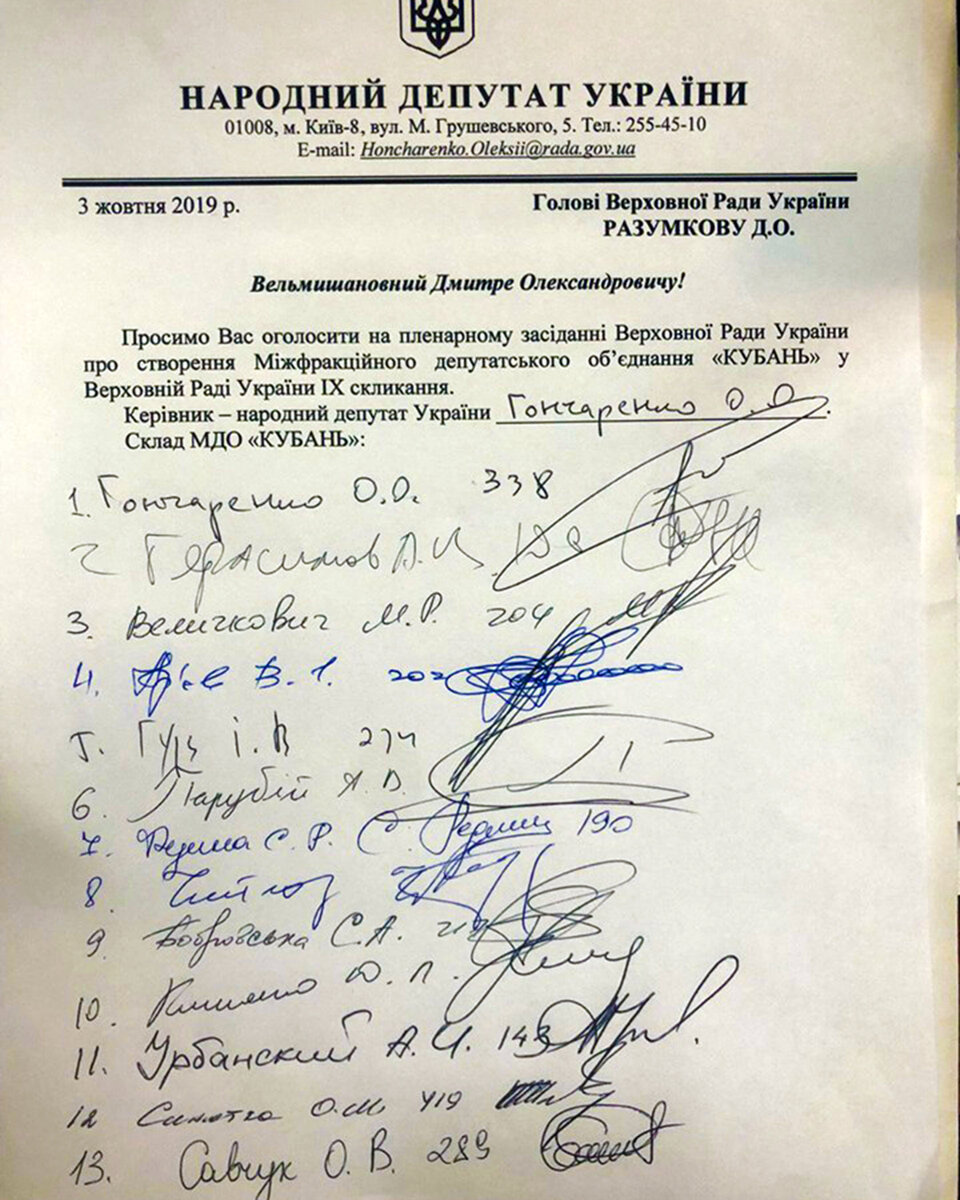 НАРОДНИЙ ДЕПУТАТ УКРАЇНИ
01008, м. Київ-8, вул. М. Грушевського, 5. Тел.: 255-45-10
E-mail: Honcharenko.Oleksii@rada.gov.ua
3 жовтня 2019 р.
Голові Верховної Ради України
РАЗУМКОВУ Д.О.
Вельмишановний Дмитре Олександровичу!
Просимо Вас оголосити на пленарному засіданні Верховної Ради України
про створення Міжфракційного депутатського об’єднання «КУБАНЬ» у
Верховній Раді України IX скликання.
Керівник – народний депутат України Гончаренко О.О.
Склад МДО «КУБАНЬ»:
1. Гончаренко О.О. 338
2 Герасимов А.
3. Величкович М.Р. 204
4. Ар'єв В.І.
5. Гузь І.В 274
6 Парубій А.В.
7. Федина С.Р. 190
8
9 Бобровська С.А.
10. Клименко Ю.Л.
11. Урбанский А.И. 143
12 О.М 419
13. Савчук О.В. 289